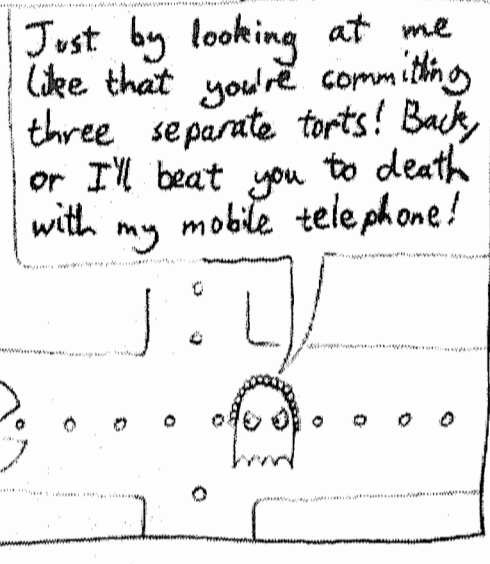 Just by looking at me
like that you're committing
three separate torts! Back,
or I'll beat you to death
with my mobile telephone!